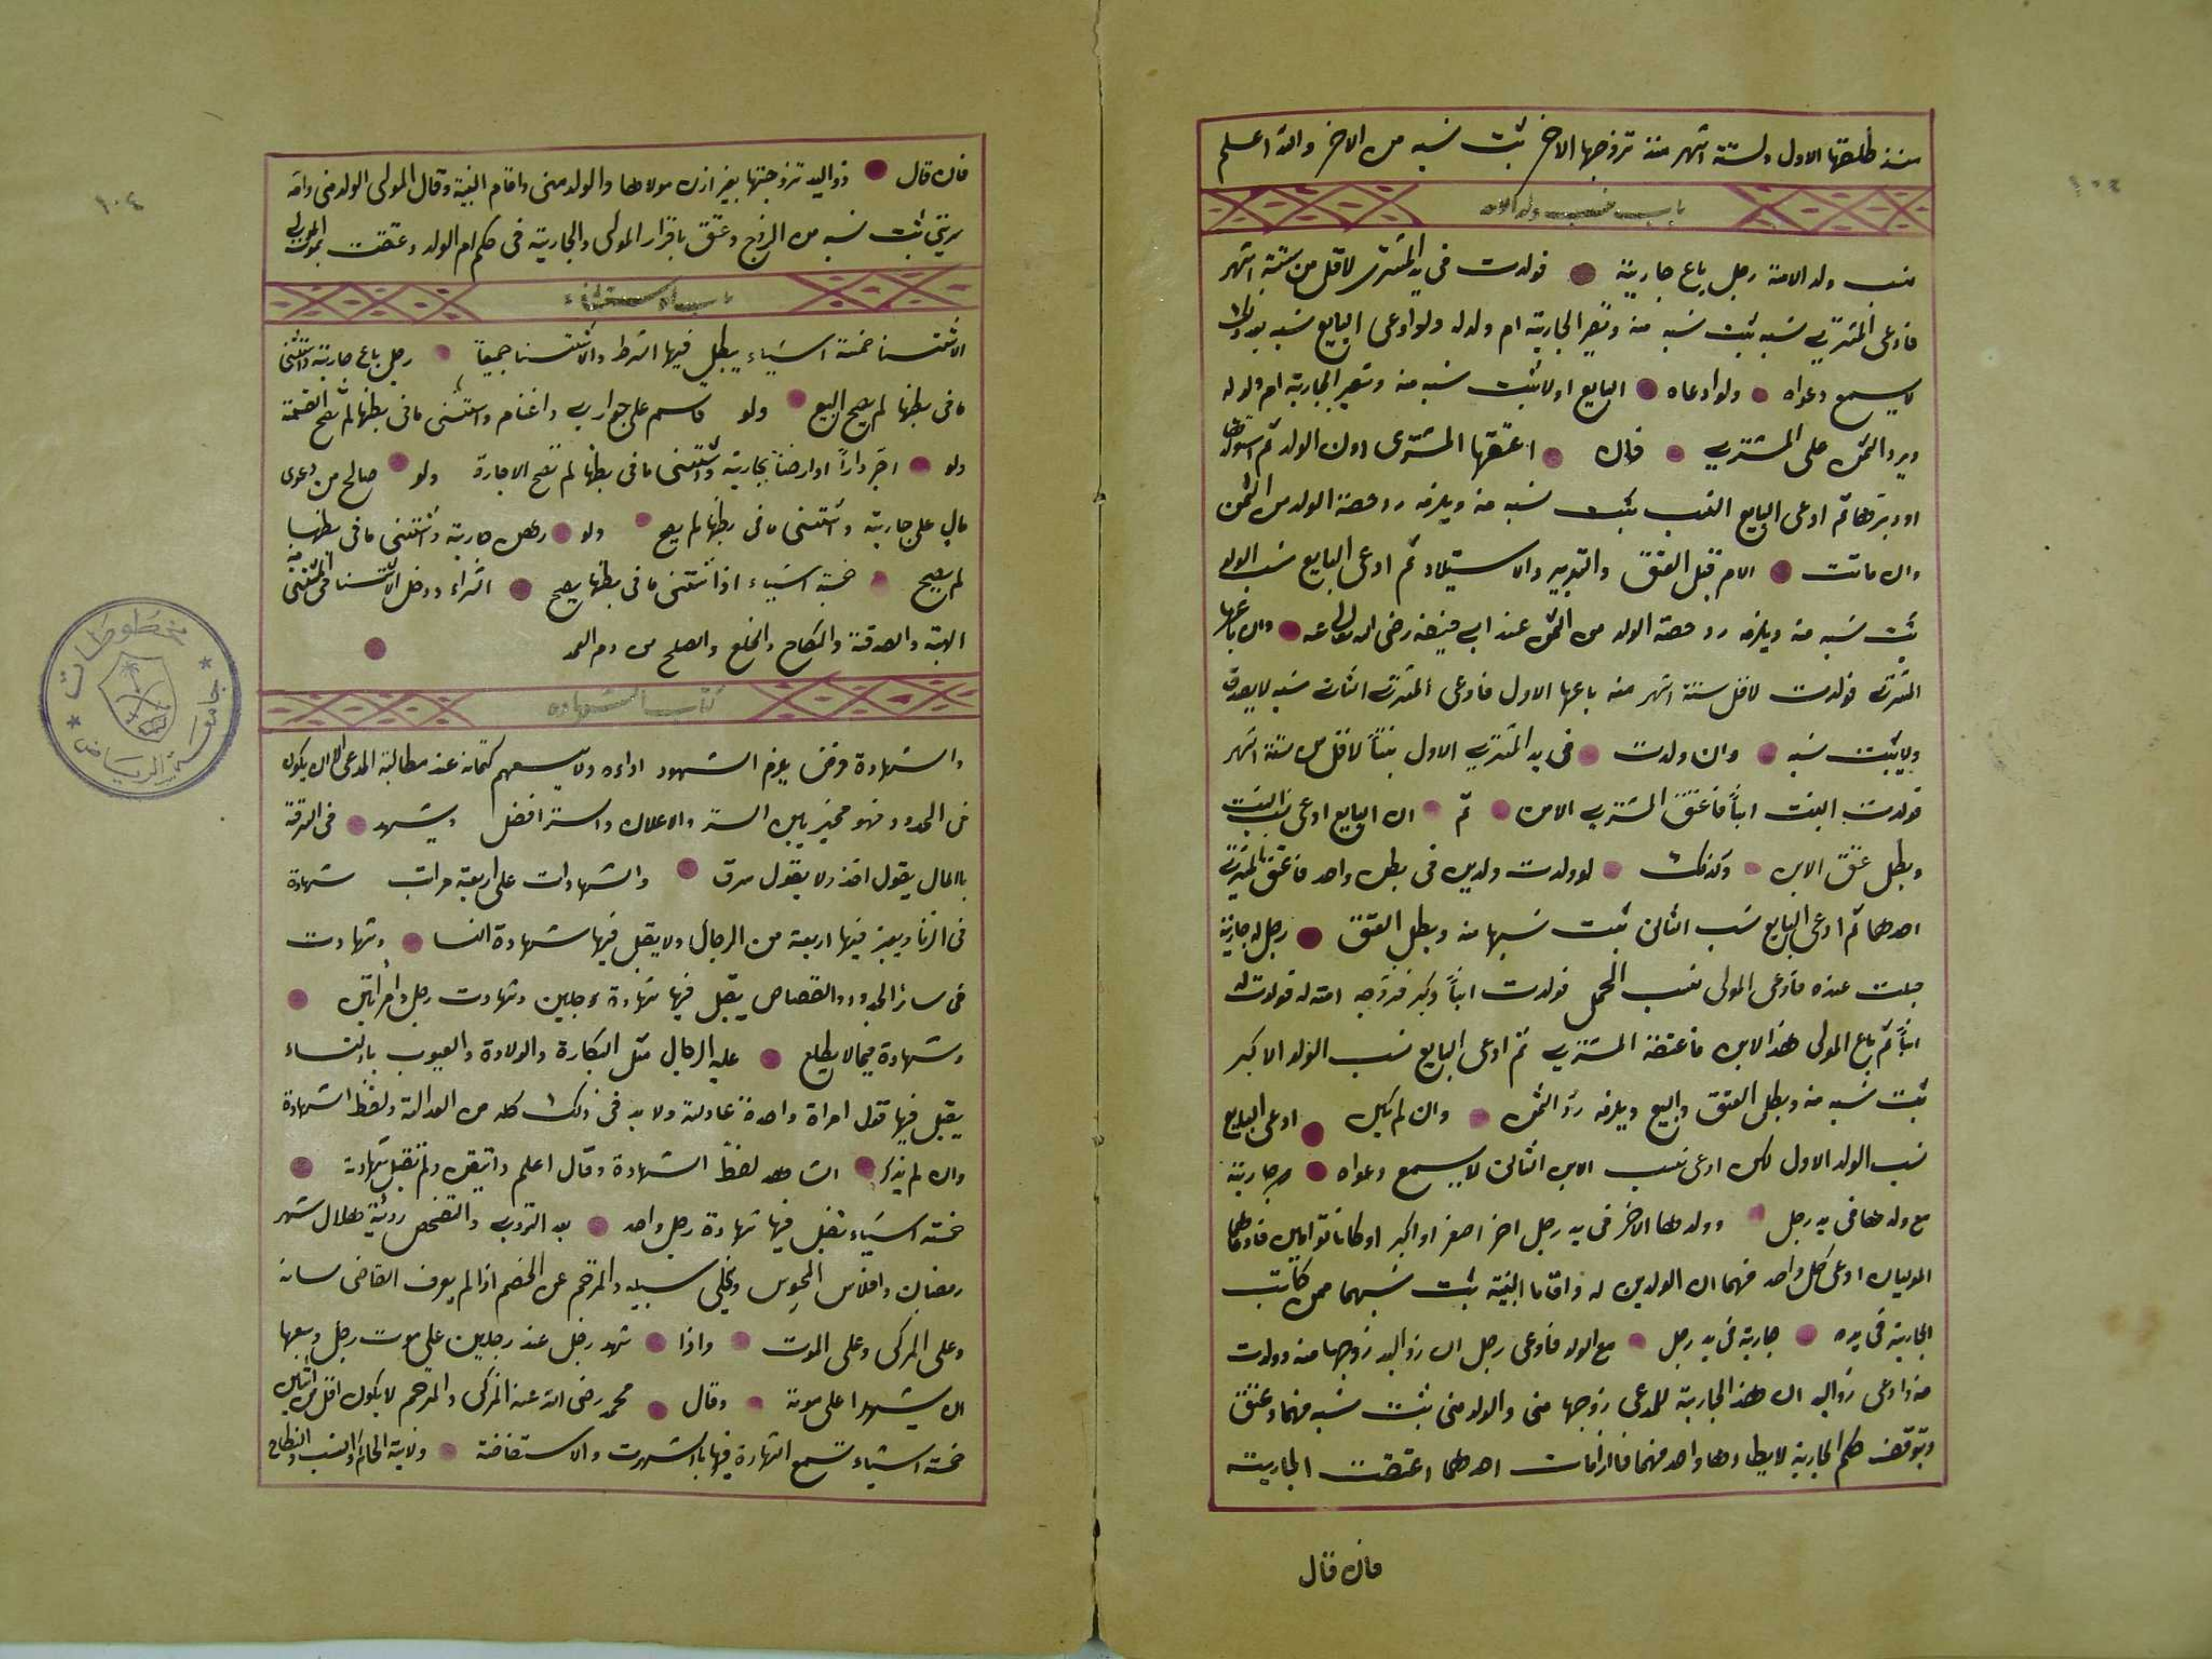 منذ طلقها الاول ولستة اشهر منذ تزوجها الاخر ثبت نسبه من الاخر والله اعلم
باب نسب ولد الامة
نسب ولد الامة رجل باع جارية فولدت فى يد المشترى لاقل من ستة اشهر
فادعى المشترى نسبه ثبت نسبه منه وتصير الجارية ام ولد له ولو ادعى البايع نسبه بعد ذلك
لا يسمع دعواه ولو ادعاه البايع اولا ثبت نسبه منه وتصير الجارية ام ولد له
ويرد الثمن على المشترى فان اعتقها المشترى دون الولد ثم استولدها
او دبرها ثم ادعى البايع النسب يثبت نسبه منه ويلزمه رد حصة الولد من الثمن
وان ماتت الام قبل العتق والتدبير والاستيلاد ثم ادعى البايع نسب الولد
ثبت نسبه منه ويلزمه رد حصة الولد من الثمن عند ابى حنيفة رضى الله تعالى عنه وان باعها
المشترى فولدت لاقل ستة اشهر منه باعها الاول فادعى المشترى الثانى نسبه لا يصدق
ولا يثبت نسبه وان ولدت فى يد المشترى الاول بنتاً لاقل من ستة اشهر
فولدت البنت ابناً فاعتق المشترى الابن ثم ان البايع ادعى نسب البنت
وبطل عتق الابن وكذلك لو ولدت ولدين فى بطن واحد فاعتق المشترى
احدهما ثم ادعى البايع نسب الثانى ثبت نسبهما منه وبطل العتق رجل له جارية
حبلت عنده فادعى المولى نسب الحمل فولدت ابناً وكبر فزوجه امته له فولدت له
ابناً ثم باع المولى هذا الابن فاعتقه المشترى ثم ادعى البايع نسب الولد الاكبر
ثبت نسبه منه وبطل العتق والبيع ويلزمه رد الثمن وان لم يكن ادعى البايع
نسب الولد الاول لكن ادعى نسب الابن الثانى لا يسمع دعواه جارية
مع ولدها فى يد رجل وولدها الاخر فى يد رجل اخر اصغر او اكبر او كانا توامين فادعاهما
الموليان ادعى كل واحد منهما ان الولدين له واقاما البينة ثبت نسبهما ممن كانت
الجارية فى يده جارية فى يد رجل مع الولد فادعى رجل ان ذواليد زوجها منه وولدت
منه وادعى ذواليد ان هذا الجارية للمدعى زوجها منى والولد منى ثبت نسبه منهما وعتق
وتوقف حكم الجارية لا يطاوها واحد منهما فاذا مات احدهما اعتقت الجارية
فان قال
فان قال ذواليد تزوجتها بغير اذن مولاها والولد منى واقام البينة وقال المولى الولد منى وامه
سريتى ثبت نسبه من الزوج وعتق باقرار المولى والجارية فى حكم ام الولد وعتقت بموت المولى
باب الاستثناء
الاستثنا خمسة اشياء يبطل فيها الشرط والاستثنا جميعاً رجل باع جارية واستثنى
ما فى بطنها لم يصح البيع ولو قاسم على جوارى واغنام واستثنى ما فى بطنها لم تصح القسمة
ولو اجر داراً او ارضاً بجارية واستثنى ما فى بطنها لم تصح الاجارة ولو صالح من دعوى
مال على جارية واستثنى ما فى بطنها لم يصح ولو رهن جارية واستثنى ما فى بطنها
لم يصح خمسة اشياء اذا استثنى ما فى بطنها يصح الشراء ودخل الاستثنا فى المستثنى منه
الهبة والصدقة والنكاح والخلع والصلح من دم العمد
كتاب الشهادة
والشهادة فرض يلزم الشهود اداءه ولا يسعهم كتمانه عند مطالبة المدعى الا ان يكون
فى الحدود فهو مخير بين الستر والاعلان والستر افضل ويشهد فى السرقة
بالمال يقول اخذ ولا يقول سرق والشهادات على اربعة مراتب شهادة
فى الزنا ويعتبر فيها اربعة من الرجال ولا يقبل فيها شهادة النسا وشهادت
فى سائر الحدود والقصاص يقبل فيها شهادة رجلين وشهادت رجل وامراتين
وشهادة فيما لا يطلع عليه الرجال مثل البكارة والولادة والعيوب بالنساء
يقبل فيها قول امراة واحدة عادلة ولا بد فى ذلك كله من العدالة ولفظ الشهادة
وان لم يذكر الشاهد لفظ الشهادة وقال اعلم واتيقن ولم تقبل شهادته
خمسة اشياء تقبل فيها شهادة رجل واحد بعد التزوى والتفحص رؤية هلال شهر
رمضان وافلاس المحبوس ويخلى سبيله والمترجم عن الخصم اذا لم يعرف القاضى لسانه
وعلى المزكى وعلى الموت واذا شهد رجل عند رجلين على موت رجل وسعهما
ان يشهدا على موته وقال محمد رضى الله عنه المزكى والمترجم لا يكون اقل من اثنين
خمسة اشياء تسمع الشهادة فيها بالشهرت والاستفاضة ولاية الحاكم والنسب والنكاح
١٠٤
مخطوطات
جامعة الرياض